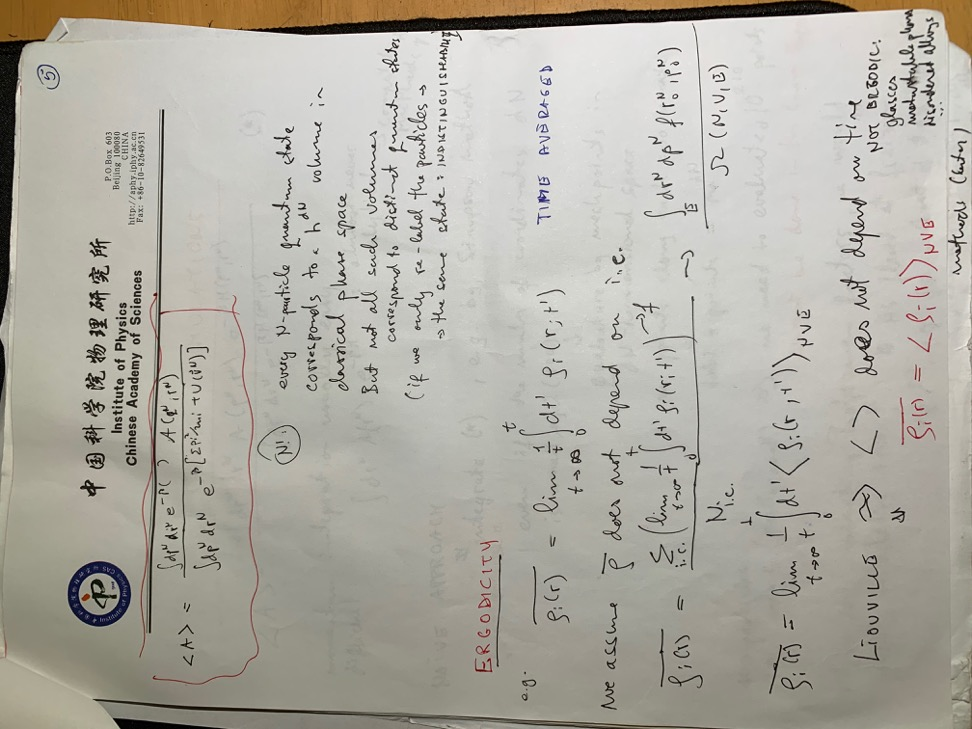 5
中国科学院物理研究所
Institute of Physics
Chinese Academy of Sciences
P.O.Box 603
Beijing 100080
CHINA
http://aphy.iphy.ac.cn
Fax: +86-10-82649531
<A> = ∫dp^N dr^N e^{-β( )} A(p^N, r^N) / ∫dp^N dr^N e^{-β[Σp_i²/2m_i + U(r^N)]}
N!:
every N-particle quantum state
corresponds to a h^{dN} volume in
classical phase space
But not all such volumes
correspond to distinct quantum states
(if we only re-label the particles →
→ the same state: INDISTINGUISHABLE)
ERGODICITY
e.g. \overline{ρ_i(r)} = lim_{t→∞} 1/t ∫_0^t dt' ρ_i(r, t') TIME AVERAGED
we assume \overline{ρ} does not depend on i.c.
\overline{ρ_i(r)} = Σ_{i.c.} (lim_{t→∞} 1/t ∫_0^t dt' ρ_i(r, t')) / N_{i.c.} → ∫_E dr^N dp^N f(r_0^N, p_0^N) / Ω(N, V, E)
→ f
\overline{ρ_i(r)} = lim_{t→∞} 1/t ∫_0^t dt' <ρ_i(r, t')>_{NVE}
LIOUVILLE ⇒ < > does not depend on time
\overline{ρ_i(r)} = <ρ_i(r)>_{NVE}
NOT ERGODIC:
glasses
metastable phases
disordered alloys
...
methods